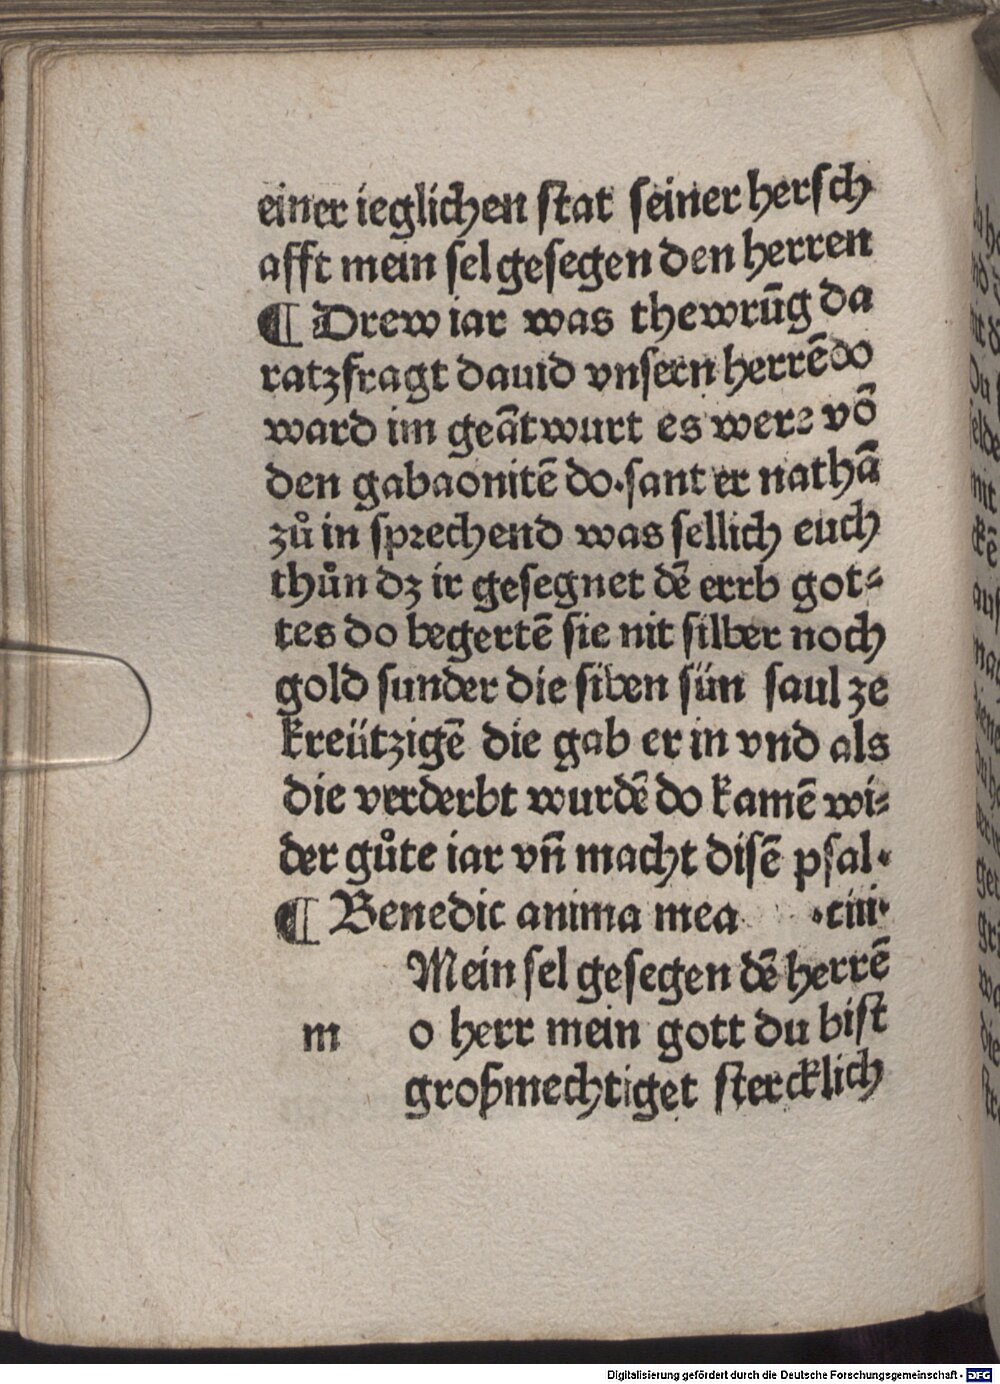 einer ieglichen stat seiner hersch
afft mein sel gesegen den herren
¶ Drew iar was thewrūg da
ratz fragt dauid vnsern herrē do
ward im geātwurt es were vō
den gabaonitē do. sant er nathā
zů in sprechend was sellich euch
thůn dz ir gesegnet dē errb got⸗
tes do begertē sie nit silber noch
gold sunder die siben sün saul ze
kreützigē die gab er in vnd als
die verderbt wurdē do kamē wi⸗
der gůte iar vn̄ macht disē psal.
¶ Benedic anima mea .ciii.
Mein sel gesegen dē herrē
m o herr mein gott du bist
großmechtiget stercklich
Digitalisierung gefördert durch die Deutsche Forschungsgemeinschaft - DFG